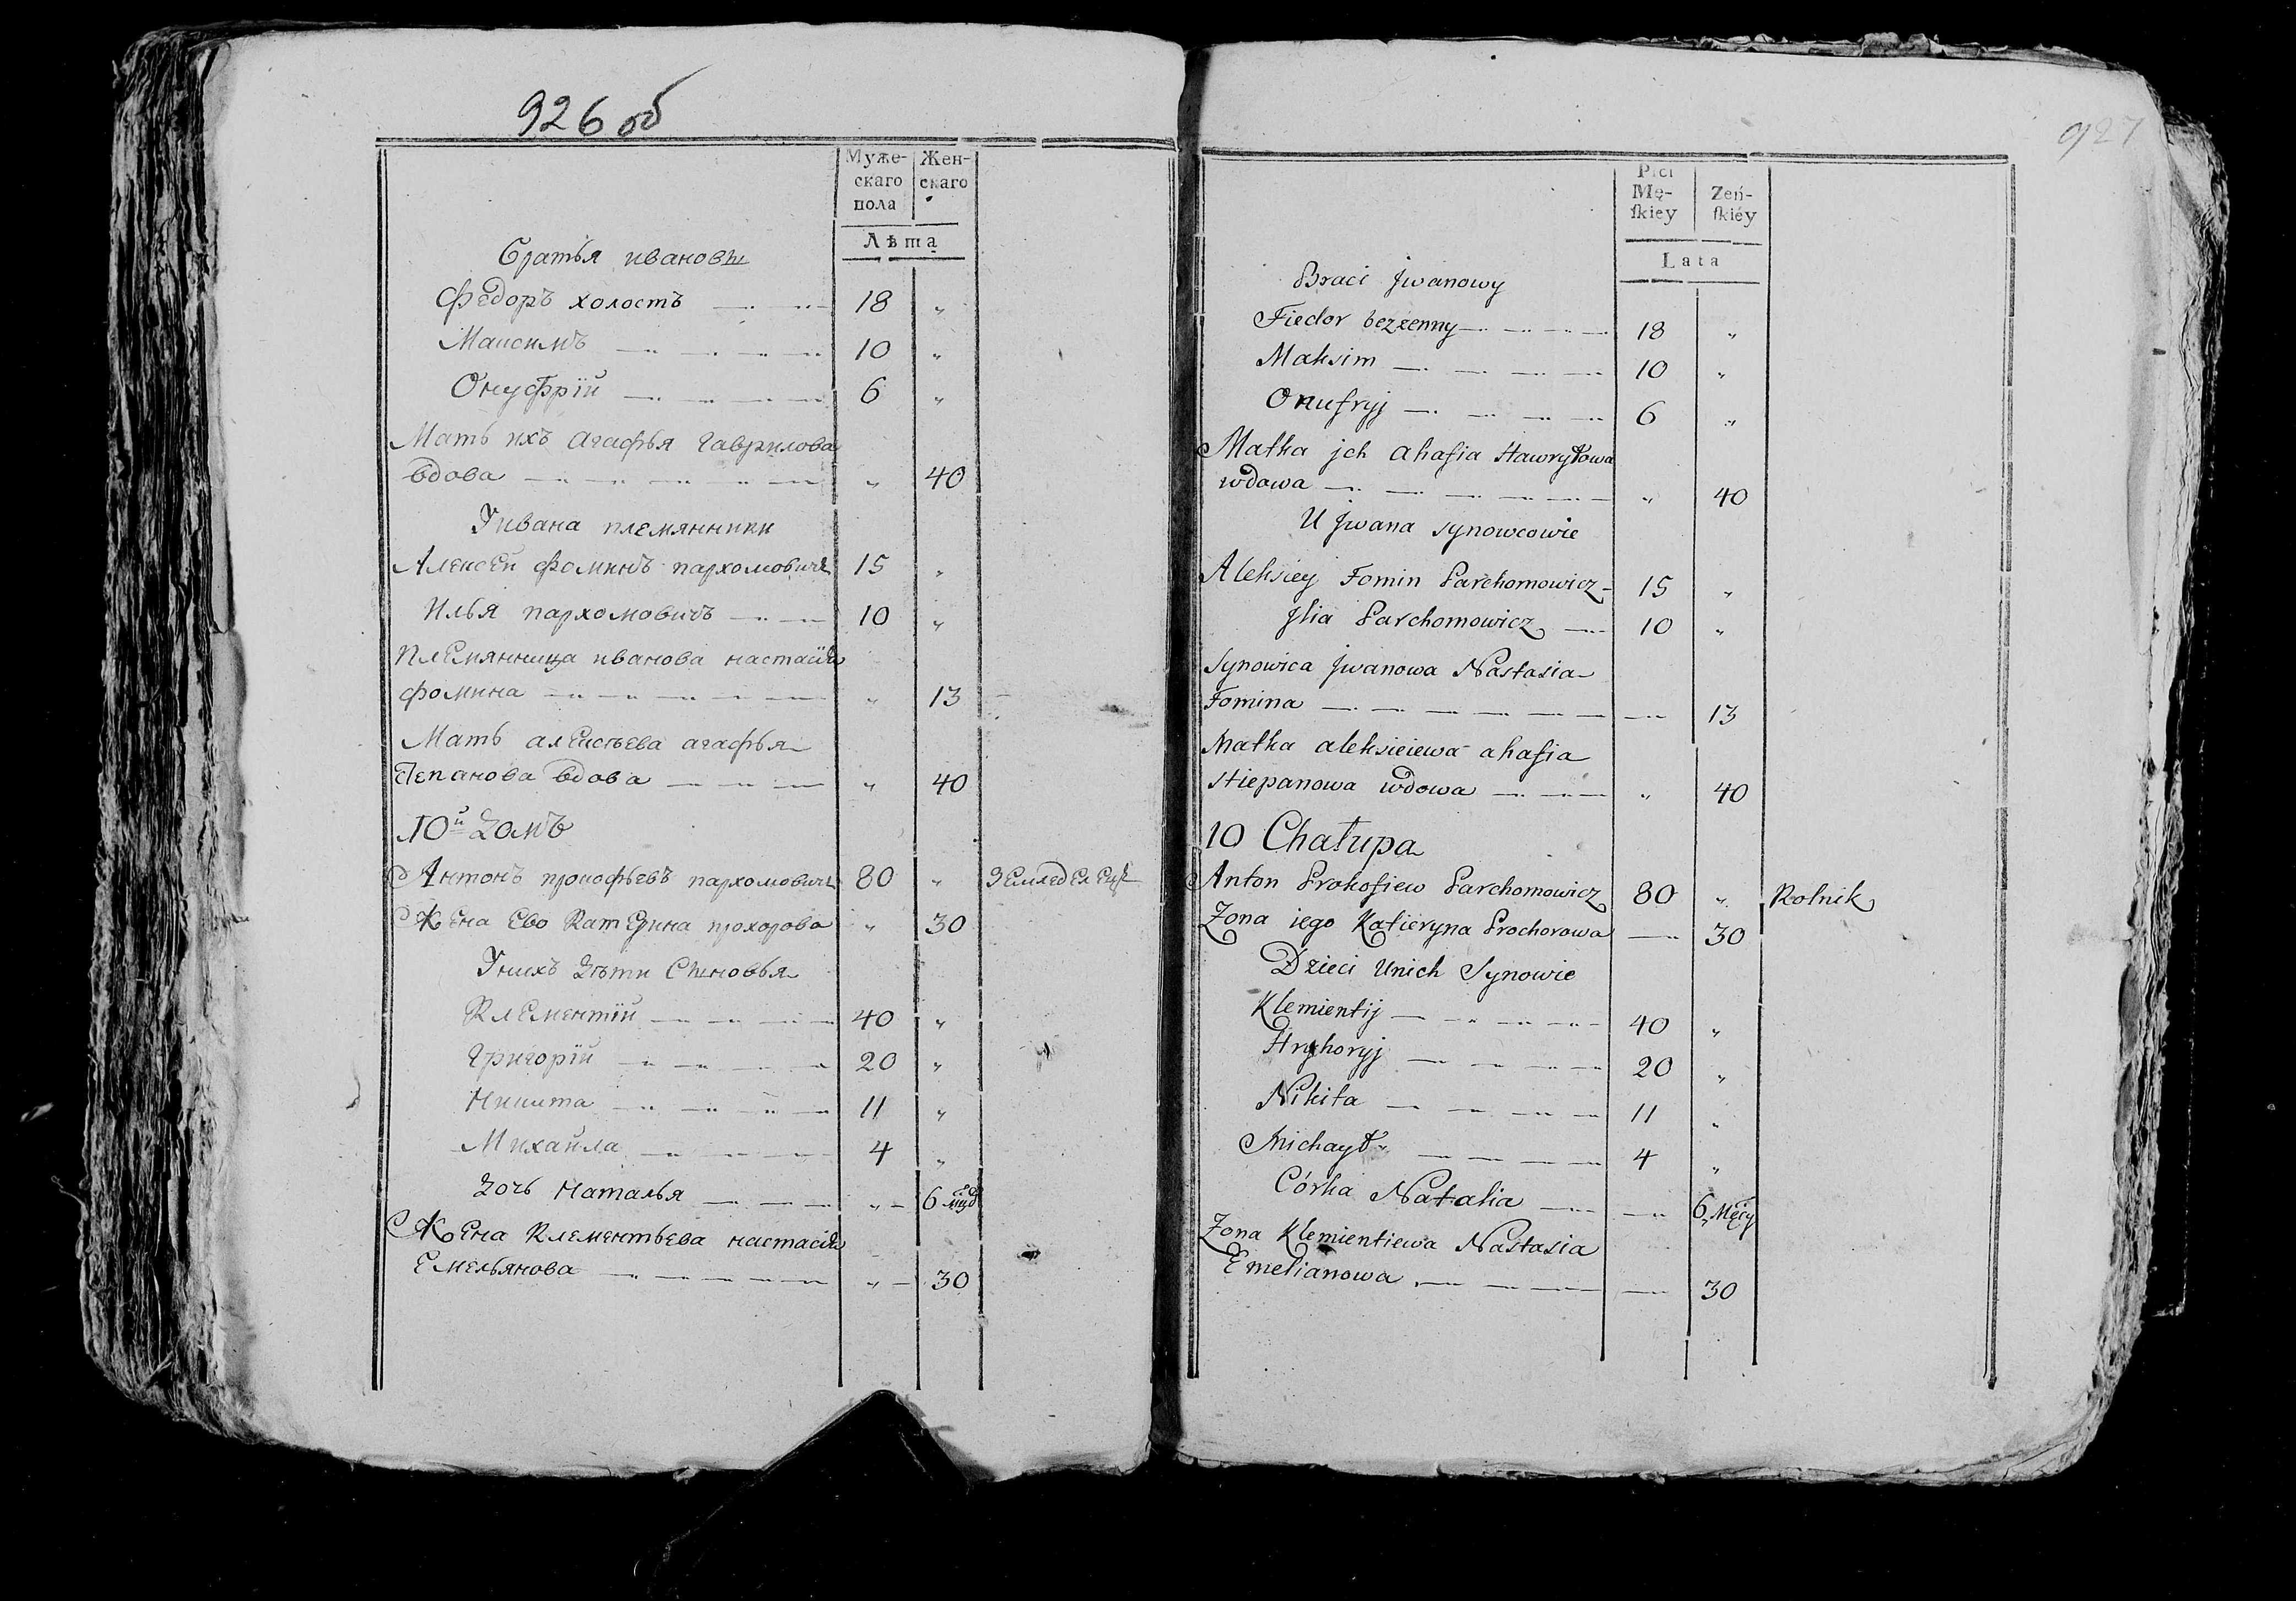 926 об
Муже- Жен-
скаго скаго
пола
Лѣта
Братья ивановы
Федоръ холостъ 18 „
Максимъ 10 „
Онуфрій 6 „
Мать ихъ агафья гаврилова
вдова „ 40
У ивана племянники
Алексей фоминъ пархомовичъ 15 „
Илья пархомовичъ 10 „
Племянница иванова настасія
фомина „ 13
Мать алексѣева агафья
степанова вдова „ 40
10й Домъ
Антонъ прокофьевъ пархомовичъ 80 „ Земледелецъ
Жена ево Катерина прохорова „ 30
У нихъ Дѣти Сыновья
Клементій 40 „
Григорій 20 „
Никита 11 „
Михайла 4 „
Дочь Наталья „ 6
Жена Клементьева настасія
Емельянова „ 30
927
Płci
Mę- Żeń-
ſkiey ſkiéy
Lata
Braci Jwanowy
Fiedor bezżenny 18 „
Maksim 10 „
Onufryj 6 „
Matka jch ahafia Hawryłowa
wdowa „ 40
U Jwana synowcowie
Aleksiey Fomin Parchomowicz 15 „
Jlia Parchomowicz 10 „
Synowica Jwanowa Nastasia
Fomina 13
Matka aleksieiewa ahafia
Stiepanowa wdowa „ 40
10 Chałupa
Anton Prokofiew Parchomowicz 80 „ Rolnik
Zona iego Katieryna Prochorowa 30
Dzieci Unich Synowie
Klemientij 40 „
Hryhoryj 20 „
Nikita 11 „
Michaył 4 „
Córka Natalia 6 Męcy
Zona Klemientiewa Nastasia
Emelianowa 30